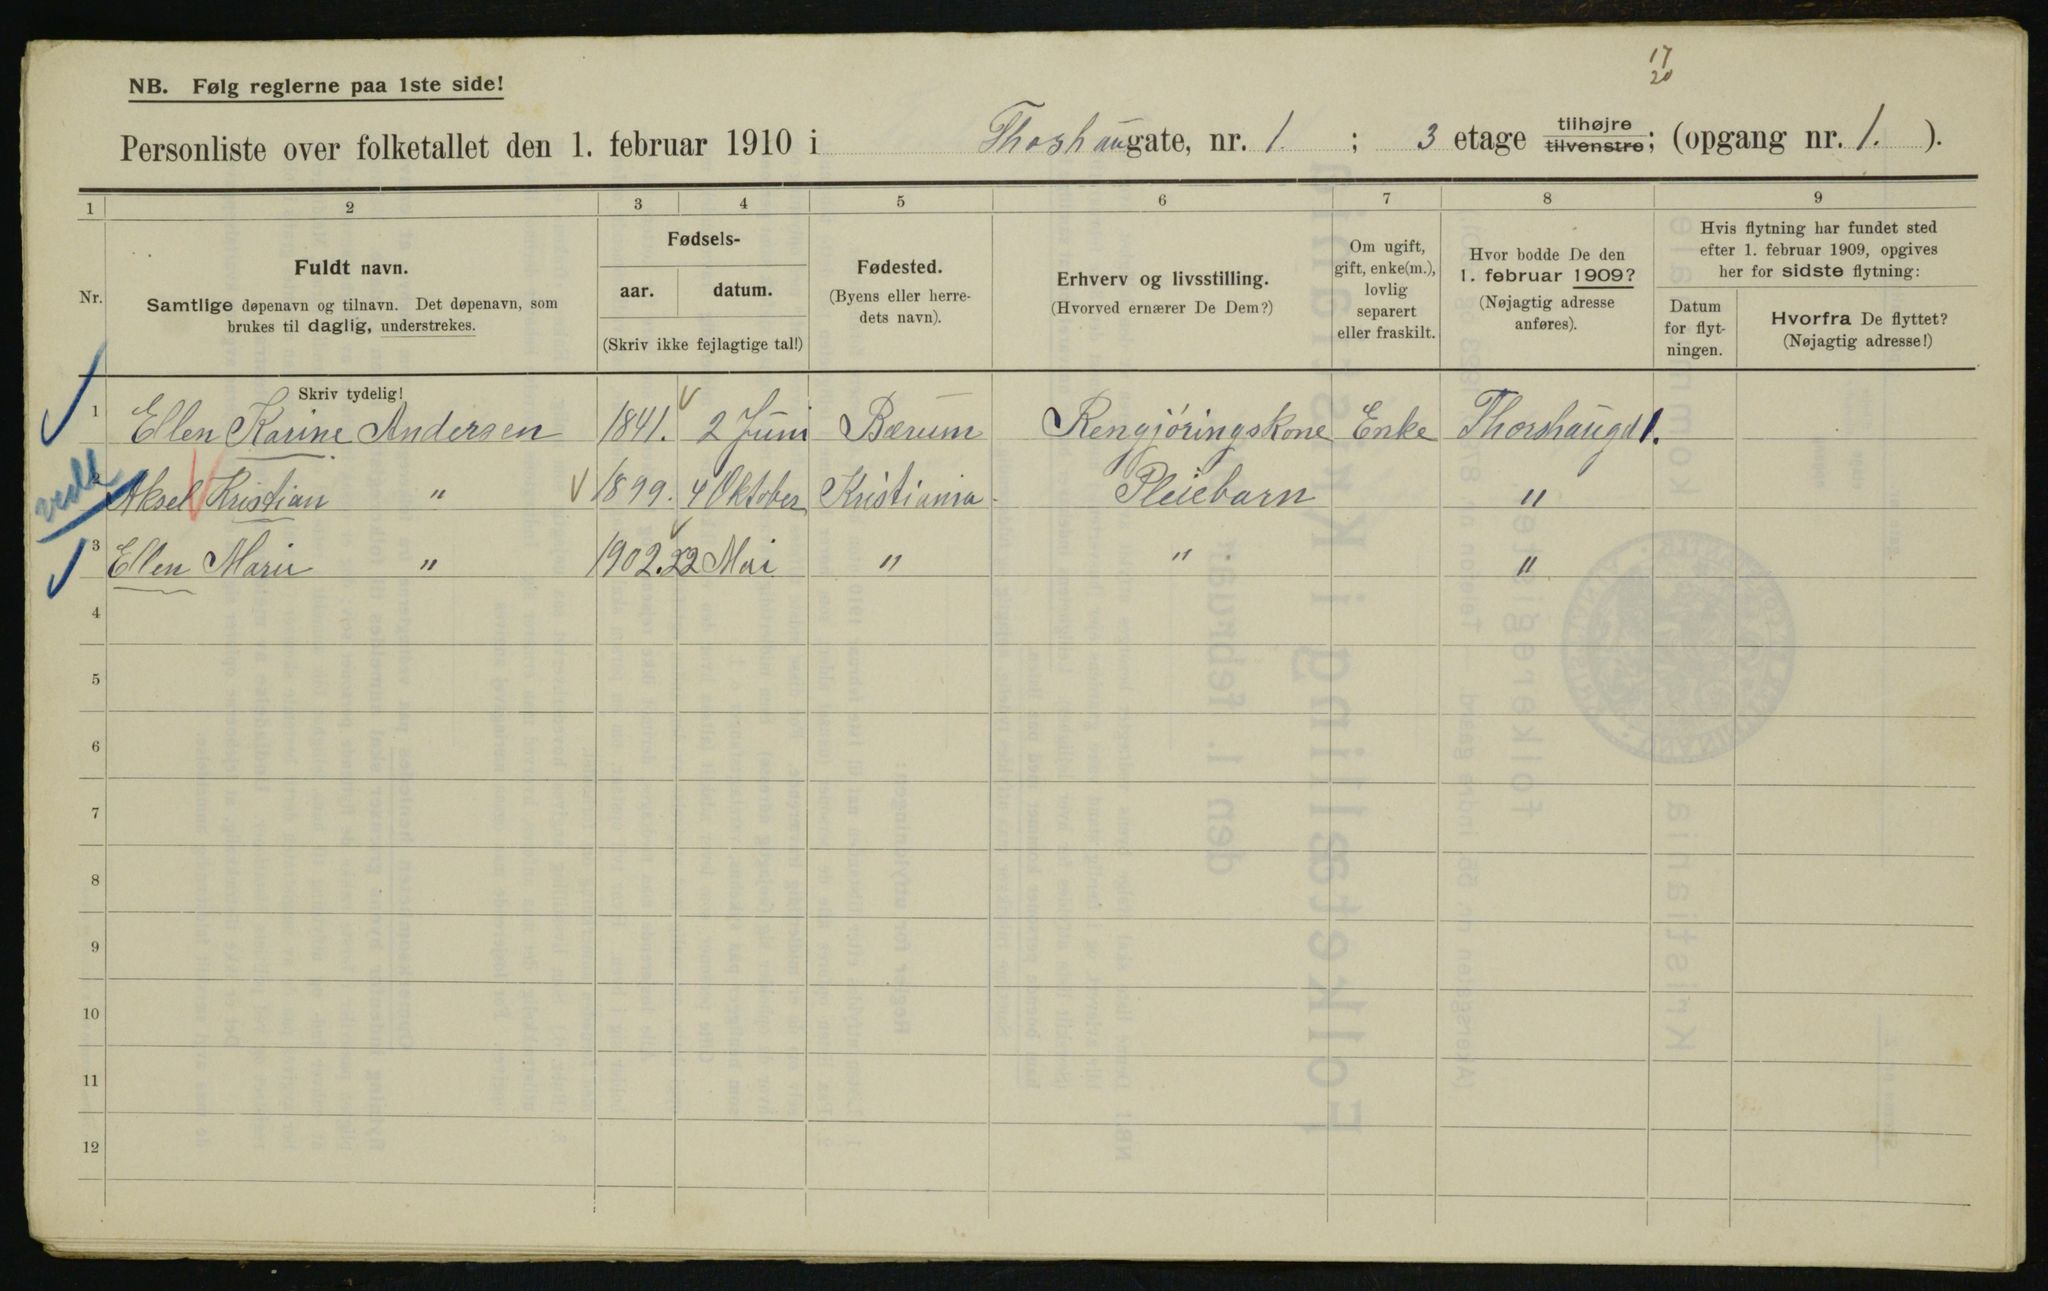 17
20
NB. Følg reglerne paa 1ste side!
Personliste over folketallet den 1. februar 1910 i Thorshaugate, nr. 1. ; 3 etage tilhøjre tilvenstre; (opgang nr. 1. ).
1 2 3 4 5 6 7 8 9
Nr.
Fuldt navn.
Samtlige døpenavn og tilnavn. Det døpenavn, som
brukes til daglig, understrekes.
Fødsels-
aar. datum.
(Skriv ikke fejlagtige tal!)
Fødested.
(Byens eller herre-
dets navn).
Erhverv og livsstilling.
(Hvorved ernærer De Dem?)
Om ugift,
gift, enke(m.),
lovlig
separert
eller fraskilt.
Hvor bodde De den
1. februar 1909?
(Nøjagtig adresse
anføres).
Hvis flytning har fundet sted
efter 1. februar 1909, opgives
her for sidste flytning:
Datum
for flyt-
ningen.
Hvorfra De flyttet?
(Nøjagtig adresse!)
Skriv tydelig!
1 Ellen Karine Andersen 1841. 2 Juni Bærum Rengjøringskone Enke Thorshaugd 1.
2 Aksel Kristian " 1899. 4 Oktober Kristiania Pleiebarn "
3 Ellen Marie " 1902. 22 Mai " " "
4
5
6
7
8
9
10
11
12